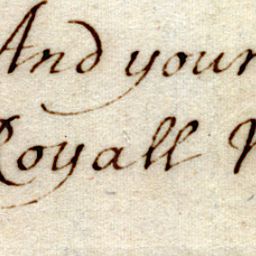 And your
Royall